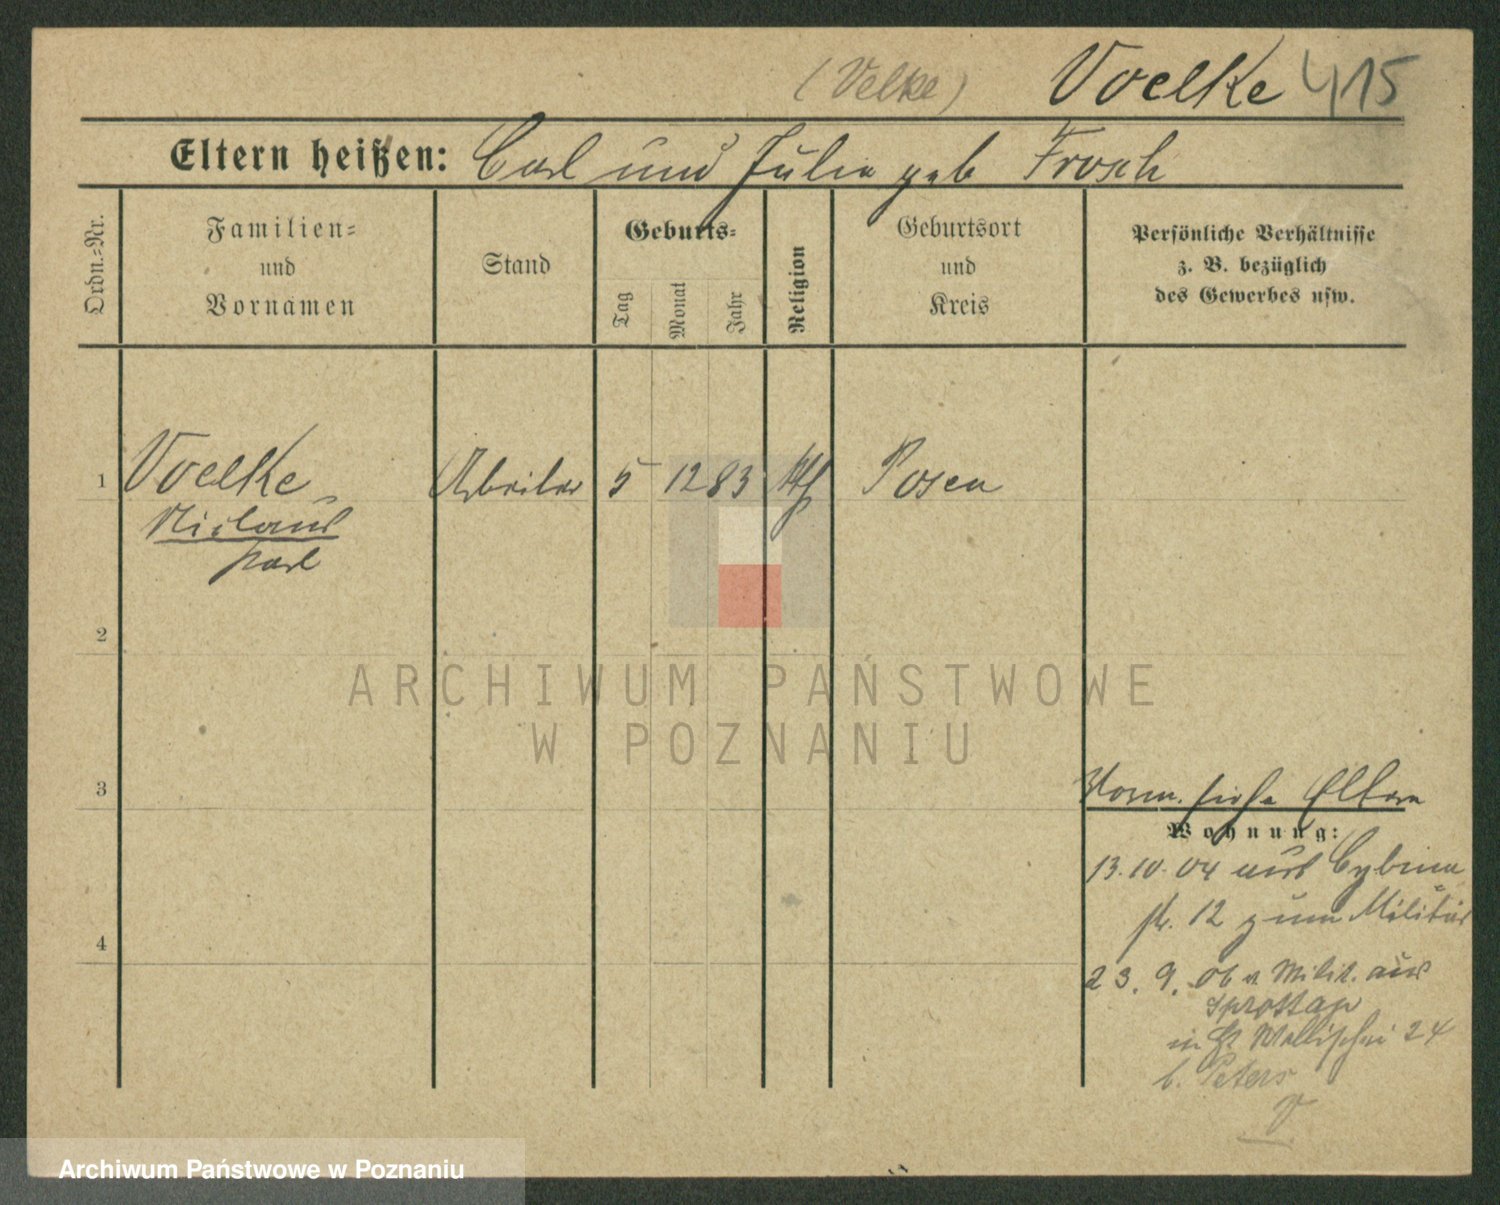 (Velke) Voelke 415
Eltern heißen: Carl und Julia geb Frosch
Ordn.=Nr.
Familien=
und
Vornamen
Stand
Geburts=
Tag
Monat
Jahr
Religion
Geburtsort
und
Kreis
Persönliche Verhältnisse
z. B. bezüglich
des Gewerbes usw.
1 Voelke Arbeiter 5 12 83 kth Posen
Nislaus
Karl
2
ARCHIWUM PAŃSTWOWE
W POZNANIU
3
Vorm. siehe Eltern
Wohnung:
13.10.04 aus Cybina
str. 12 zum Militär
4
23. 9. 06 v Milit. aus
Sprottau
in St Wallischei 24
b. Peters
Archiwum Państwowe w Poznaniu